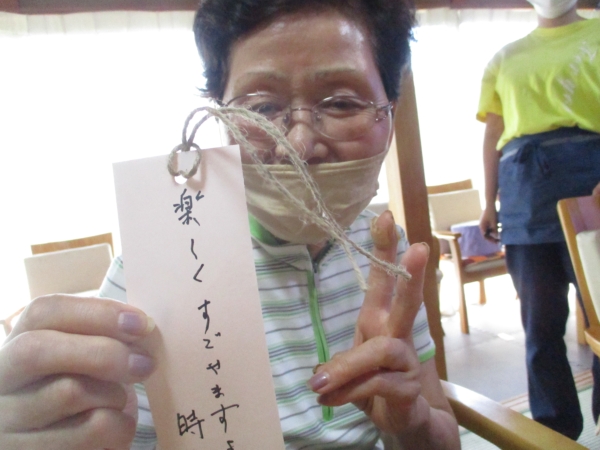 楽しくすごせますよ
時